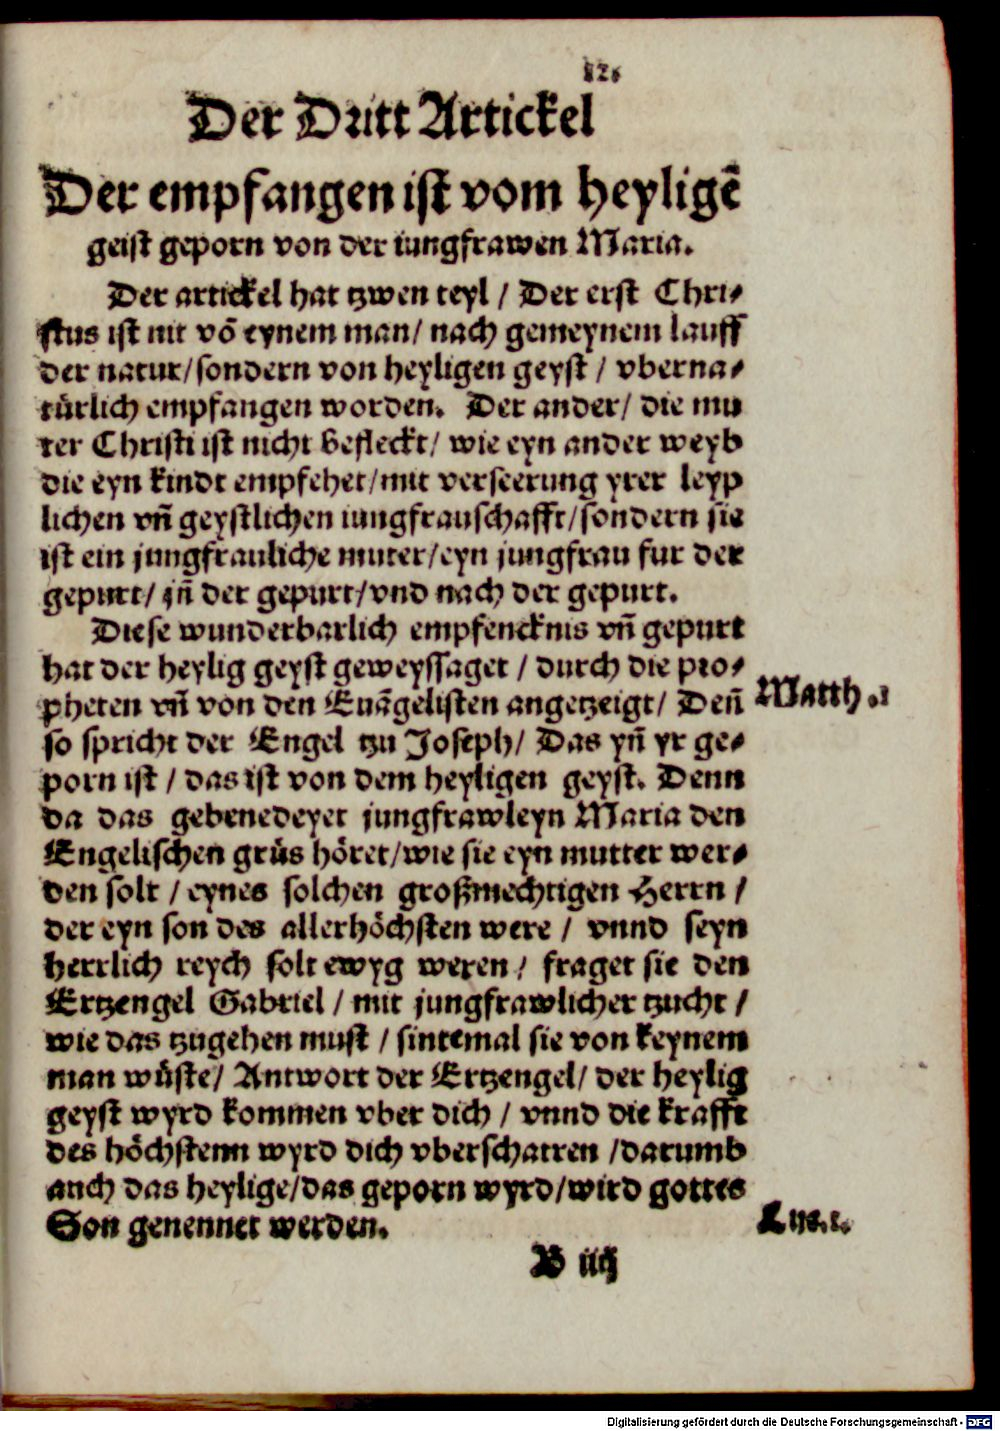 Der Dritt Artickel
Der empfangen ist vom heyligē
geist geporn von der iungfrawen Maria.
Der artickel hat tzwen teyl / Der erst Chri⸗
stus ist nit vō eynem man / nach gemeynem lauff
der natur / sondern von heyligen geyst / vberna⸗
türlich empfangen worden. Der ander / die mu
ter Christi ist nicht befleckt / wie eyn ander weyb
die eyn kindt empfehet / mit verseerung yrer leyp
lichen vñ geystlichen iungfrauschafft / sondern sie
ist ein jungfrauliche muter / eyn jungfrau fur der
gepurt / jñ der gepurt / vnd nach der gepurt.
Diese wunderbarlich empfencknis vñ gepurt
hat der heylig geyst geweyssaget / durch die pro⸗
pheten vñ von den Euāgelisten angetzeigt / Deñ
so spricht der Engel tzu Joseph / Das yñ yr ge⸗
porn ist / das ist von dem heyligen geyst. Denn
da das gebenedeyet jungfrawleyn Maria den
Engelischen grůs höret / wie sie eyn mutter wer⸗
den solt / eynes solchen großmechtigen Herrn /
der eyn son des allerhöchsten were / vnnd seyn
herrlich reych solt ewyg weren / fraget sie den
Ertzengel Gabriel / mit jungfrawlicher tzucht /
wie das tzugehen must / sintemal sie von keynem
man wüste / Antwort der Ertzengel / der heylig
geyst wyrd kommen vber dich / vnnd die krafft
des höchstenn wyrd dich vberschatten / darumb
auch das heylige / das geporn wyrd / wird gottes
Son genennet werden.
Matth .1
Luc. 1.
B iiij
Digitalisierung gefördert durch die Deutsche Forschungsgemeinschaft - DFG